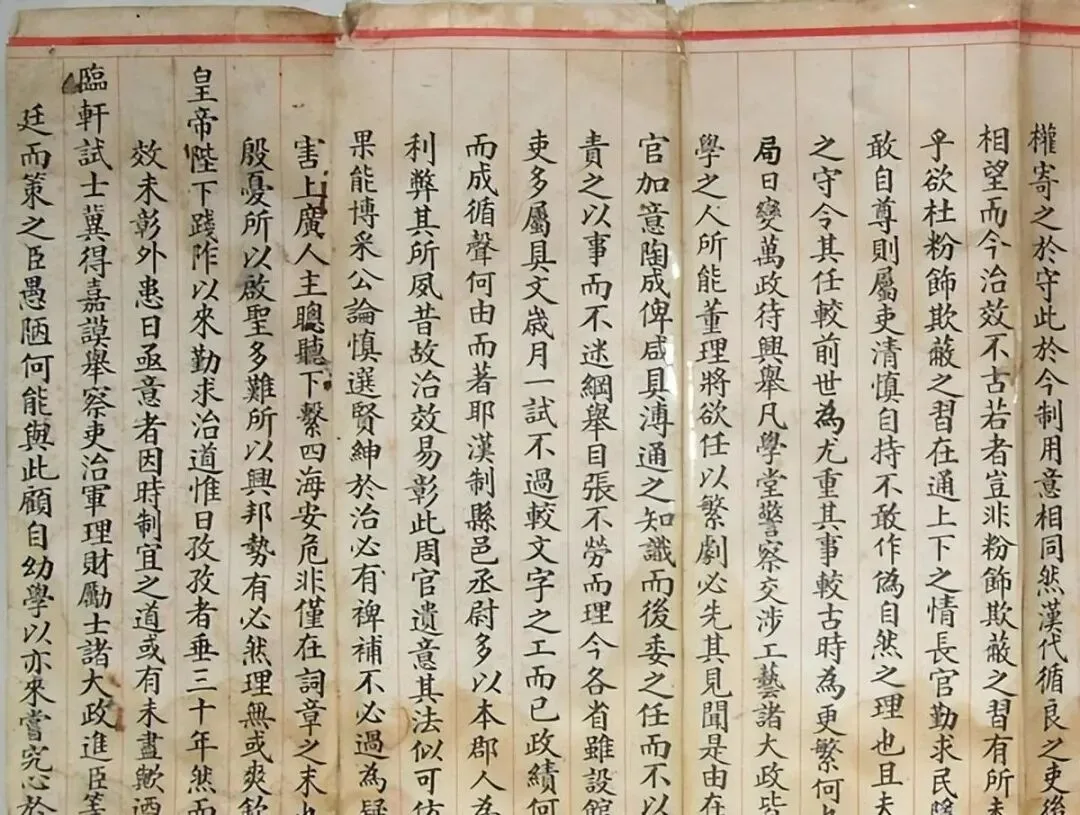 權寄之於守此於今制用意相同然漢代循良之吏後
相望而今治效不古若者豈非粉飾欺蔽之習有所未
乎欲杜粉飾欺蔽之習在通上下之情長官勤求民隱
敢自尊則屬吏清慎自持不敢作偽自然之理也且夫
之守令其任較前世為尤重其事較古時為更繁何
局日變萬政待興舉凡學堂警察交涉工藝諸大政皆
學之人所能董理將欲任以繁劇必先其見聞是由在
官加意陶成俾咸具溥通之知識而後委之任而不以
責之以事而不迷綱舉目張不勞而理今各省雖設館
吏多屬具文歲月一試不過較文字之工而已政績何
而成循聲何由而著耶漢制縣邑丞尉多以本郡人為
利弊其所夙昔故治效易彰此周官遺意其法似可仿
果能博采公論慎選賢紳於治必有裨補不必過為疑
害上廣人主聰聽下繫四海安危非僅在詞章之末也
殷憂所以啟聖多難所以興邦勢有必然理無或爽欽
皇帝陛下踐阼以來勤求治道惟日孜孜者垂三十年然而
效未彰外患日亟意者因時制宜之道或有未盡歟迺
臨軒試士冀得嘉謨舉察吏治軍理財勵士諸大政進臣等
廷而策之臣愚陋何能與此顧自幼學以亦來嘗究心於